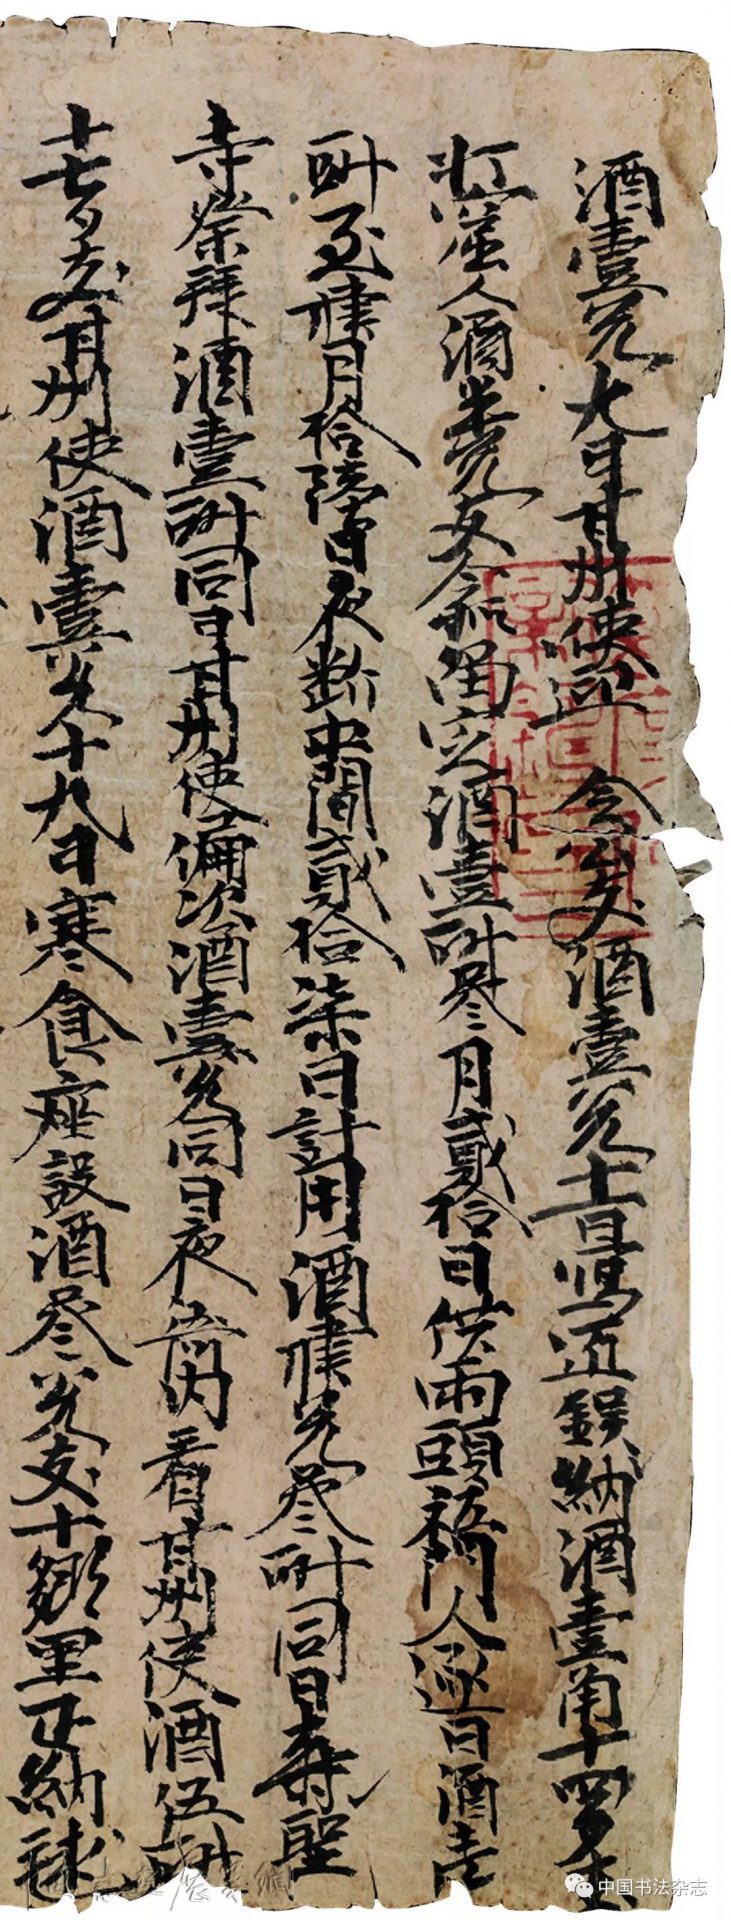 酒壹瓮九日甘州使迎 令公支酒壹瓮十一日納酒壹角十四日支
打窟人酒半瓮支令狐留定酒壹㪷叁月貳拾日供兩頭祗門人逐日酒壹
㪷至肆月拾陸日夜斷中間貳拾柒日計用酒肆瓮叁㪷同日壽聖
寺祭拜酒壹㪷同日甘州使偏次酒壹瓮同日夜衙內看甘州使酒伍㪷
十七日支甘州使酒壹瓮十九日寒食座設酒叁瓮支十鄉里正納毬
中国书法杂志